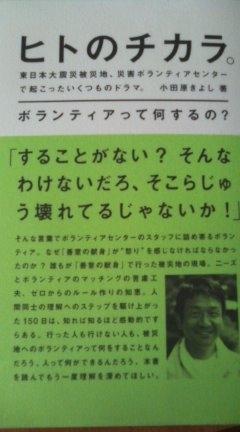 ヒトのチカラ。
東日本大震災被災地、災害ボランティアセンター
で起こったいくつものドラマ。 小田原きよし 著
ボランティアって何するの？
「することがない？ そんな
わけないだろ、そこらじゅ
う壊れてるじゃないか！」
そんな言葉でボランティアセンターのスタッフに詰め寄るボラン
ティア。なぜ「善意の献身」が“怒り”を感じなければならなかっ
たのか？ 誰もが「善意の献身」で行った被災地の現場。ニーズ
とボランティアのマッチングの苦慮と工
夫、ゼロからのルール作りの知恵。人
間同士の理解へのステップを駆け上がっ
た150日は、知れば知るほど感動的です
らある。行った人も行けない人も、被災
地へのボランティアって何をすることなん
だろう、人って何ができるんだろう、本書
を読んでもう一度理解を深めてほしい。